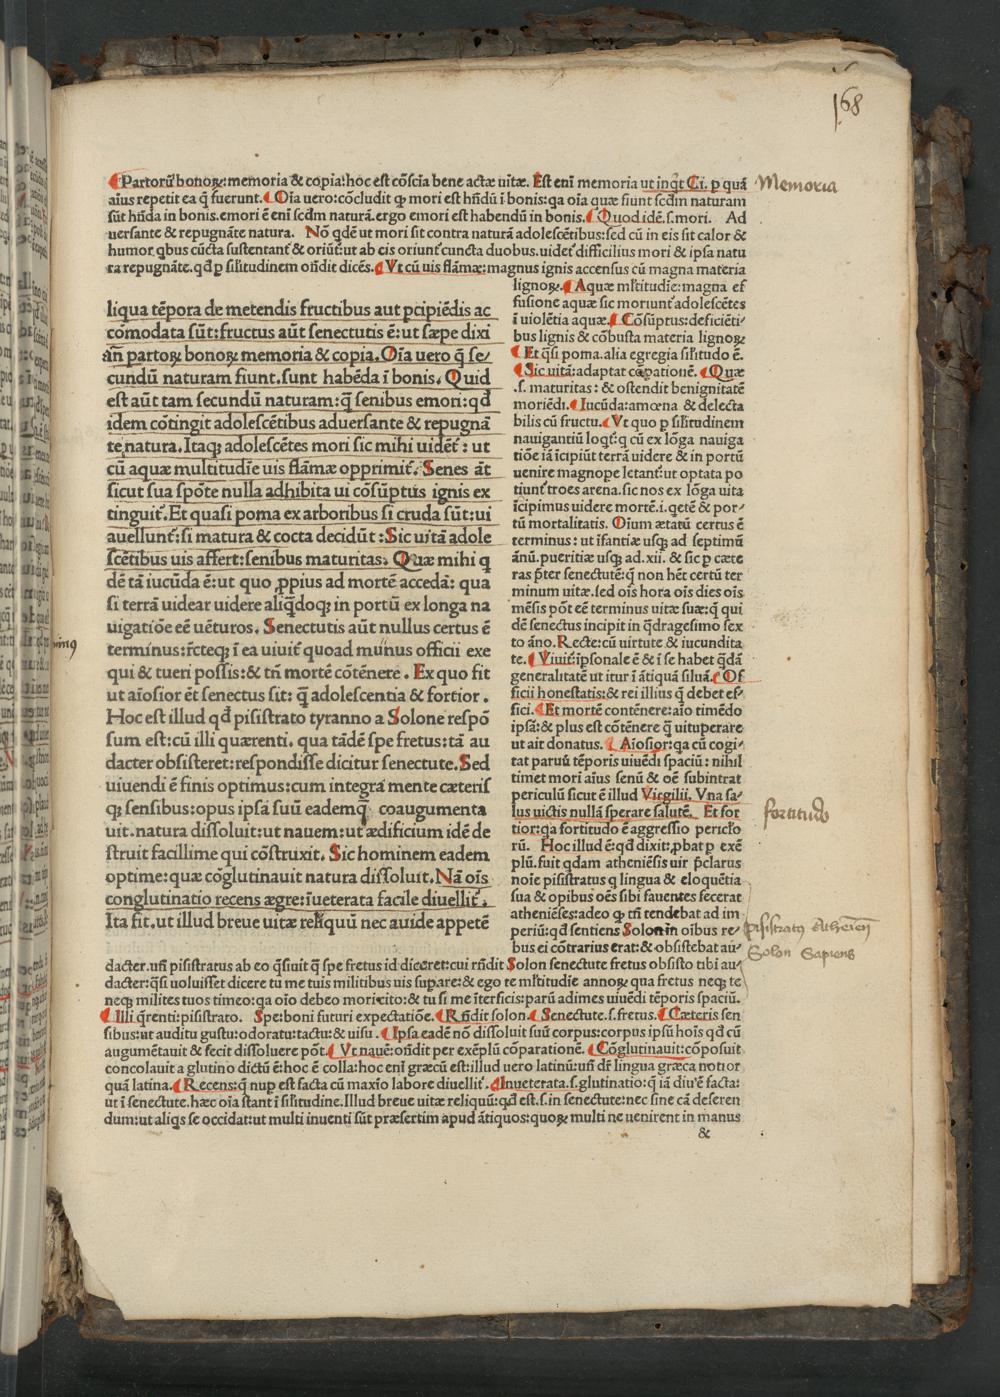 168
Partorũ bonoꝝ: memoria & copia: hoc est cõsciã bene actæ uitæ. Est eni memoria ut inq̃t Ci. p quã
aĩus repetit ea q̃ fuerunt. Oĩa uero: cõcludit ꝙ mori est hñdũ ĩ bonis: qa oĩa quæ fiunt scdm naturam
sũt hñda in bonis. emori ẽ eni scdm naturã. ergo emori est habendũ in bonis. Quod idẽ. s. mori. Ad
uersante & repugnãte natura. Nõ qdẽ ut mori sit contra naturã adolescẽtibus: sed cũ in eis sit calor &
humor qbus cũcta sustentant̃ & oriũt̃: ut ab eis oriunt̃ cuncta duobus. uidet̃ difficilius mori & ipsa natu
ra repugnãte. qd̃ p silitudinem oñdit dicẽs. Vt cũ uis flãmæ: magnus ignis accensus cũ magna materia
lignoꝝ. Aquæ mltitudie: magna ef
fusione aquæ sic moriunt̃ adolescẽtes
ĩ uiolẽtia aquæ. Cõsũptus: deficiẽti-
bus lignis & cõbusta materia lignoꝝ
Et q̃si poma. alia egregia silitudo ẽ.
Sic uitã: adaptat cõpationẽ. Quæ
.s. maturitas: & ostendit benignitatẽ
moriẽdi. Iucũda: amœna & delecta
bilis cũ fructu. Vt quo p silitudinem
nauigantiũ loqt̃: q cũ ex lõga nauiga
tiõe iã ĩcipiũt terrã uidere & in portũ
uenire magnope letant̃: ut optata po
tiunt̃ troes arena. sic nos ex lõga uita
ĩcipimus uidere mortẽ. i. qetẽ & por-
tũ mortalitatis. Oĩum ætatũ certus ẽ
terminus: ut ĩfantiæ usq; ad septimũ
ãnũ. pueritiæ usq; ad. xii. & sic p cæte
ras p̃ter senectutẽ: q̃ non hẽt certũ ter
minum uitæ. sed oĩs hora oĩs dies oĩs
mẽsis põt eẽ terminus uitæ suæ: q̃ qui
dẽ senectus incipit in q̃dragesimo sex
to ãno. Recte: cũ uirtute & iucundita
te. Viuit̃: ĩpsonale ẽ & ĩ se habet q̃dã
generalitatẽ ut itur ĩ ãtiquã siluã. Of
ficii honestatis: & rei illius q̃ debet ef-
fici. Et mortẽ contẽnere: aĩo timẽdo
ipsã: & plus est cõtẽnere q̃ uituperare
ut ait donatus. Aĩosior: qa cũ cogi-
tat paruũ tẽporis uiuẽdi spaciũ: nihil
timet mori aĩus senũ & oẽ subintrat
periculũ sicut ẽ illud Virgilii. Vna sa-
lus uictis nullã sperare salutẽ. Et for
tior: qa fortitudo ẽ aggressio periclo
rũ. Hoc illud ẽ: qd̃ dixit: ꝓbat p exẽ
plũ. fuit qdam atheniẽsis uir p̃clarus
noĩe pisistratus q lingua & eloquẽtia
sua & opibus oẽs sibi fauentes fecerat
atheniẽses: adeo ꝙ tñ tendebat ad im
periũ: qd̃ sentiens Solon in oĩbus re-
bus ei cõtrarius erat: & obsistebat au-
liqua tẽpora de metendis fructibus aut pcipiẽdis ac
cõmodata sũt: fructus aũt senectutis ẽ: ut sæpe dixi
añ partoꝝ bonoꝝ memoria & copia. Oĩa uero q̃ se-
cundũ naturam fiunt. sunt habẽda ĩ bonis. Quid
est aũt tam secundũ naturam: q̃ senibus emori: qd̃
idem cõtingit adolescẽtibus aduersante & repugnã
te natura. Itaq; adolescẽtes mori sic mihi uidẽt̃: ut
cũ aquæ multitudĩe uis flãmæ opprimit̃. Senes ãt
sicut sua spõte nulla adhibita ui cõsũptus ignis ex
tinguit̃. Et quasi poma ex arboribus si cruda sũt: ui
auellunt̃: si matura & cocta decidũt: Sic uitã adole
scẽtibus uis affert: senibus maturitas. Quæ mihi q
dẽ tã iucũda ẽ: ut quo ꝓpius ad mortẽ accedã: qua
si terrã uidear uidere aliq̃doq; in portũ ex longa na
uigatiõe eẽ uẽturos. Senectutis aũt nullus certus ẽ
terminus: rc̃teq; ĩ ea uiuit̃ quoad munus officii exe
qui & tueri possis: & tñ mortẽ cõtẽnere. Ex quo fit
ut aĩosior ẽt senectus sit: q̃ adolescentia & fortior.
Hoc est illud qd̃ pisistrato tyranno a Solone respõ
sum est: cũ illi quærenti. qua tãdẽ spe fretus: tã au
dacter obsisteret: respondisse dicitur senectute. Sed
uiuendi ẽ finis optimus: cum integra mente cæteris
q; sensibus: opus ipsa suũ eademq̃ coaugumenta
uit. natura dissoluit: ut nauem: ut ædificium idẽ de
struit facillime qui cõstruxit. Sic hominem eadem
optime: quæ cõglutinauit natura dissoluit. Nã oĩs
conglutinatio recens ægre: ĩueterata facile diuellit̃.
Ita fit. ut illud breue uitæ reliquũ nec auide appetẽ
dacter. uñ pisistratus ab eo q̃siuit q̃ spe fretus id diceret: cui rñdit Solon senectute fretus obsisto tibi au-
dacter: q̃si uoluisset dicere tu me tuis militibus uis supare: & ego te mltitudie annoꝝ qua fretus neq; te
neq; milites tuos timeo: qa oĩo debeo mori cito: & tu si me ĩterficis: parũ adimes uiuẽdi tẽporis spaciũ.
Illi q̃renti: pisistrato. Spe: boni futuri expectatiõe. Rñdit solon. Senectute. s. fretus. Cæteris sen
sibus: ut auditu gustu: odoratu: tactu: & uisu. Ipsa eadẽ nõ dissoluit suũ corpus: corpus ipsũ hoĩs qd̃ cũ
augumẽtauit & fecit dissoluere põt. Vt nauẽ: oñdit per exẽplũ cõparationẽ. Cõglutinauit: cõposuit
concolauit a glutino dictũ ẽ: hoc ẽ colla: hoc eni græcũ est: illud uero latinũ: uñ dr̃ lingua græca notior
quã latina. Recens: q̃ nup est facta cũ maxĩo labore diuellit̃. Inueterata. s. glutinatio: q̃ iã diu ẽ facta:
ut ĩ senectute. hæc oĩa stant ĩ silitudine. Illud breue uitæ reliquũ: qd̃ est. s. in senectute: nec sine cã deseren
dum: ut aliqs se occidat: ut multi inuenti sũt præsertim apud ãtiquos: quoꝝ multi ne uenirent in manus
&
Memoria
fortitudo
Pisistratus Athenien
Solon Sapiens